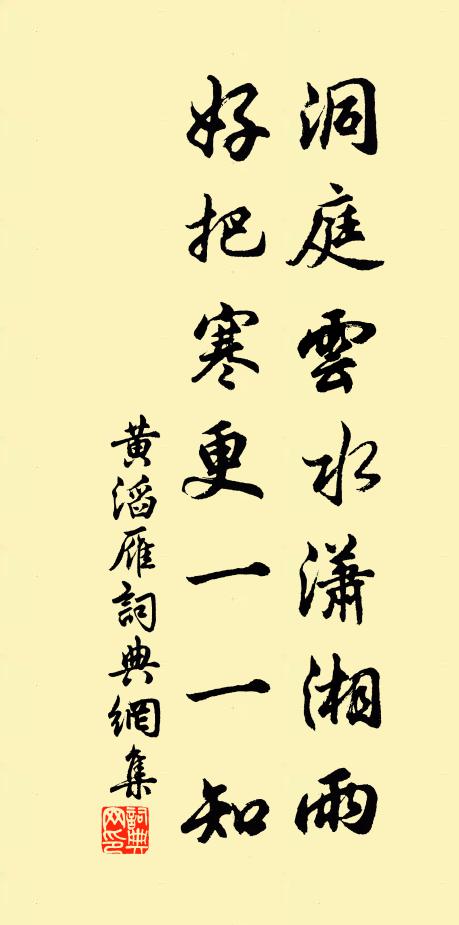 洞庭雲水瀟湘雨
好把寒更一一知
黄滔雁詞典網集
詞典網印